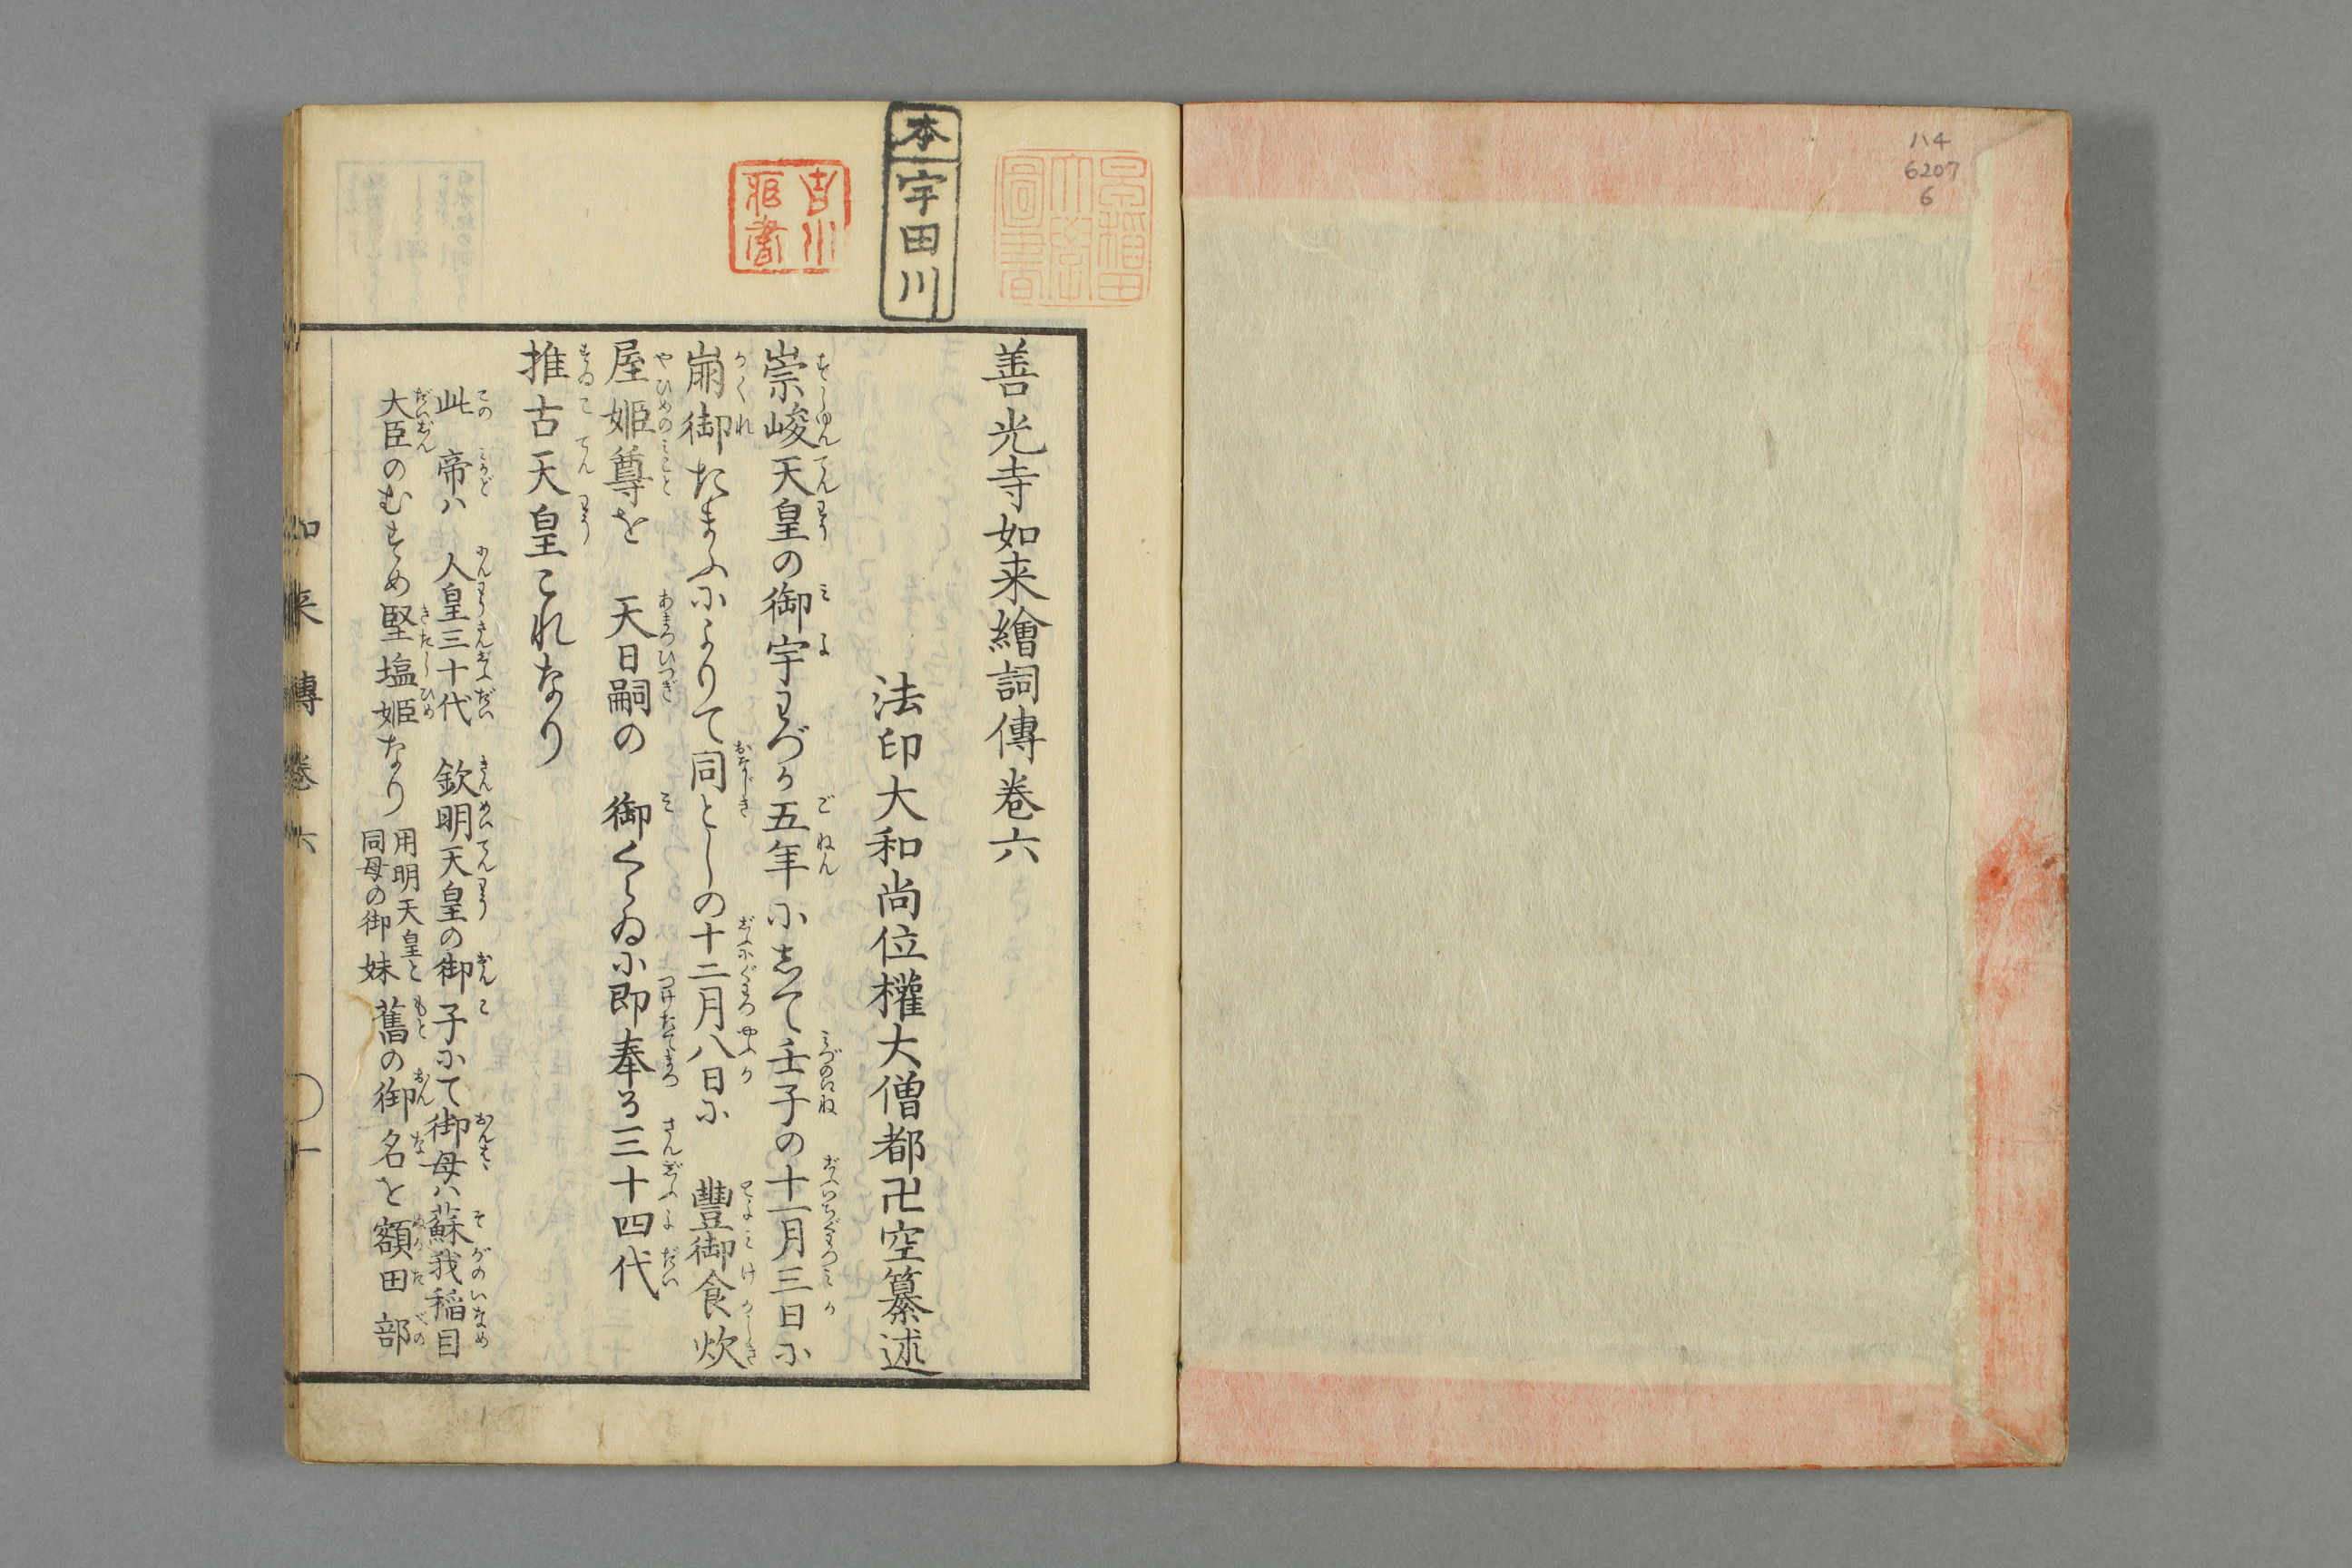 ハ4
6207
6
早稲田大学図書
本宇田川
善光寺如来繪詞傳巻六
法印大和尚位權大僧都卍空纂述
崇峻天皇の御宇わづか五年に志て壬子の十一月三日に
崩御たまふによりて同としの十二月八日に 豐御食炊
屋姬尊を 天日嗣の 御くらゐに即奉る三十四代
推古天皇これなり
此 帝ハ 人皇三十代 欽明天皇の御子にて御母ハ蘇我稲目
大臣のむすめ堅塩姬なり 用明天皇と同母の御妹 舊の御名を額田部
如来傳巻六 〇一